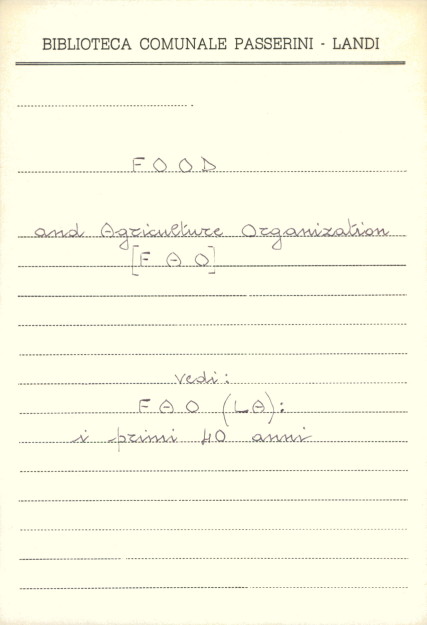 BIBLIOTECA COMUNALE PASSERINI - LANDI
FOOD
and Agriculture Organization
[FAO]
vedi:
FAO (LA):
i primi 40 anni